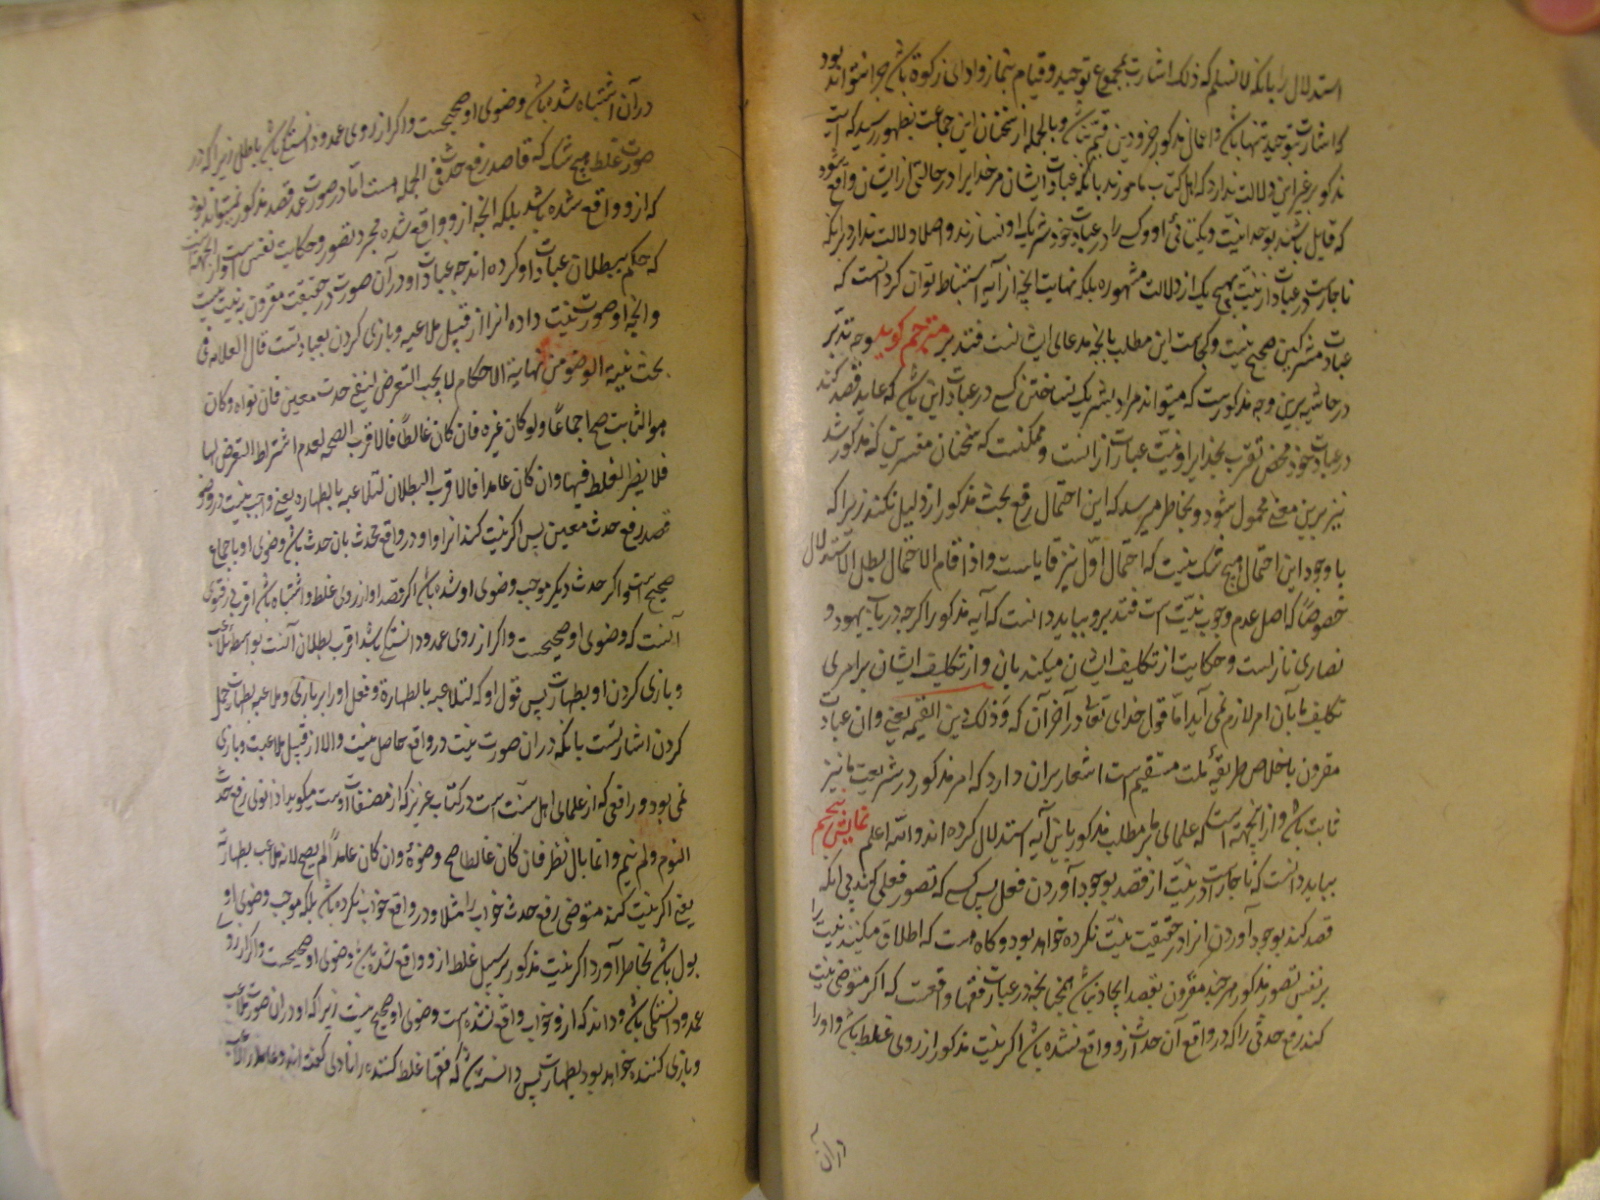 استدلال را بآنکه لا نسلم که ذلک اشارت بمجموع توحید و قیام بنماز و ادای زکوة باشد چرا نتواند بود
که اشارت بتوحید تنها باشد و اعمال مذکور جزو دین قیم نباشد و بالجمله از سخنان این جماعت بظهور رسید که آیت
مذکور بر غیر این دلالت ندارد که اهل کتاب مامورند بآنکه عبادت ایشان مر خدایرا در حالتی از ایشان واقع شود
که قایل باشند بوحدانیت و یکتائی او و کسی را در عبادت خود شریک او نسازند و اصلا دلالت ندارد بر آنکه
ناچارست در عبادات از نیت بهیچ یک از دلالت مشهوره بلکه نهایت آنچه از آیه استنباط توان کرد آنست که
عبادت مشرکین صحیح نیست و کجاست این مطلب بآنچه مدعای ایشانست فتدبر مترجم کوید وجه تدبر
در حاشیه برین وجه مذکورست که میتواند مراد بشریک نساختن کسی در عبادت این باشد که عابد قصد کند
در عبادت خود محض تقرب بخدایرا و نیت عبارت از آنست و ممکنست که سخنان مفسرین که مذکور شد
نیز برین معنی محمول شود و بخاطر میرسد که این احتمال رفع بحث مذکور از دلیل نکند زیرا که
با وجود این احتمال هیچ شک نیست که احتمال اول نیز قایمست و اذا قام الاحتمال بطل الاستدلال
خصوصا که اصل عدم وجوب نیت است فتدبر و بباید دانست که آیه مذکور اکر چه در باب یهود و
نصاری نازلست و حکایت از تکلیف ایشان میکند بان و از تکلیف ایشان بر امری
تکلیف ما بآن امر لازم نمی آید اما قول خدای تعالی در آخر آن که و ذلک دین القیمه یعنی و آن عبادت
مقرون باخلاص طریقهٔ ملت مستقیم است اشعار بران دارد که امر مذکور در شریعت ما نیز
ثابت باشد و از اینجهت است که علمای ما بر مطلب مذکور باین آیه استدلال کرده اند و الله اعلم نمایش پنجم
بباید دانست که ناچار است در نیت از قصد بوجود آوردن فعل پس کسی که تصور فعلی کند بی آنکه
قصد کند بوجود آوردن آنرا در حقیقت نیت نکرده خواهد بود و کاه هست که اطلاق میکنند نیت را
بر نفس تصور مذکور هر چند مقرون بقصد ایجاد نباشد همچنانچه در عبارت فقها واقعست که اکر متوضی نیت
کند رفع حدثی را که در واقع آن حدث از و واقع نشده باشد اکر نیت مذکور از روی غلط باشد و او را
در آن
در آن اشتباه شده باشد وضوی او صحیحست و اکر از روی عمد و دانستکی باشد باطل زیرا که در
صورت غلط هیچ شک که قاصد رفع حدث فی الجمله هست اما در صورت عمد قصد مذکور نمیتواند بود
که از و واقع شده باشد بلکه آنچه از و واقع شده مجرد تصور و حکایت نفس است و از اینجهت
که حکم ببطلان عبادت او کرده اند چه عبادت او در آن صورت در حقیقت مقرون به نیت نیست
و آنچه او صورت نیت داده آنرا از قبیل ملاعبه و بازی کردن بعبادتست قال العلامه فی
بحث نیة الوضو من نهایة الاحکام لا یجب التعرض لنفی حدث معین فان نواه و کان
هو الثابت صح اجماعا و لو کان غیره فان کان غالطا فالاقرب الصحه لعدم اشتراط التعرض لها
فلا یضر الغلط فیها و ان کان عامدا فالاقرب البطلان لتلاعبه بالطهاره یعنی واجب نیست در وضو
قصد رفع حدث معین پس اکر نیت کند آنرا و او در واقع محدث بان حدث باشد وضوی او باجماع
صحیح است و اکر حدث دیکر موجب وضوی او شده باشد اکر قصد او از روی غلط و اشتباه باشد اقرب در فتوی
آنست که وضوی او صحیحست و اکر از روی عمد و دانستکی باشد اقرب بطلان آنست بواسطهٔ تلاعب
و بازی کردن او بطهارت پس قول او که لتلاعبه بالطهارة و فعل او را بر بازی و ملاعبه بطهارت حمل
کردن اشارتست بآنکه در ان صورت نیت در واقع حاصل نیست و الا از قبیل ملاعبت و بازی
نمی بود و رافعی که از علمای اهل سنت است در کتاب عزیز که از مصنفات اوست میکوید اذا نوی رفع حدث
النوم و لم ینم و انما بال نظر فان کان غالطا صح وضوءه و ان کان عامدا لم یصح لانه ملاعب بطهارته
یعنی اکر نیت کند متوضی رفع حدث خواب را مثلا و در واقع خواب نکرده باشد بلکه موجب وضوی او
بول باشد بخاطر آورد اکر نیت مذکور بر سبیل غلط از و واقع شده باشد وضوی او صحیحست و اکر از رو
عمد و دانستکی باشد و داند که از و خواب واقع نشده است وضوی او صحیح نیست زیرا که او در ان صورت ملاعب
و بازی کننده خواهد بود بطهارت پس دانستن که فقها غلط کننده را ناوی کفته اند و عامد را لاعب